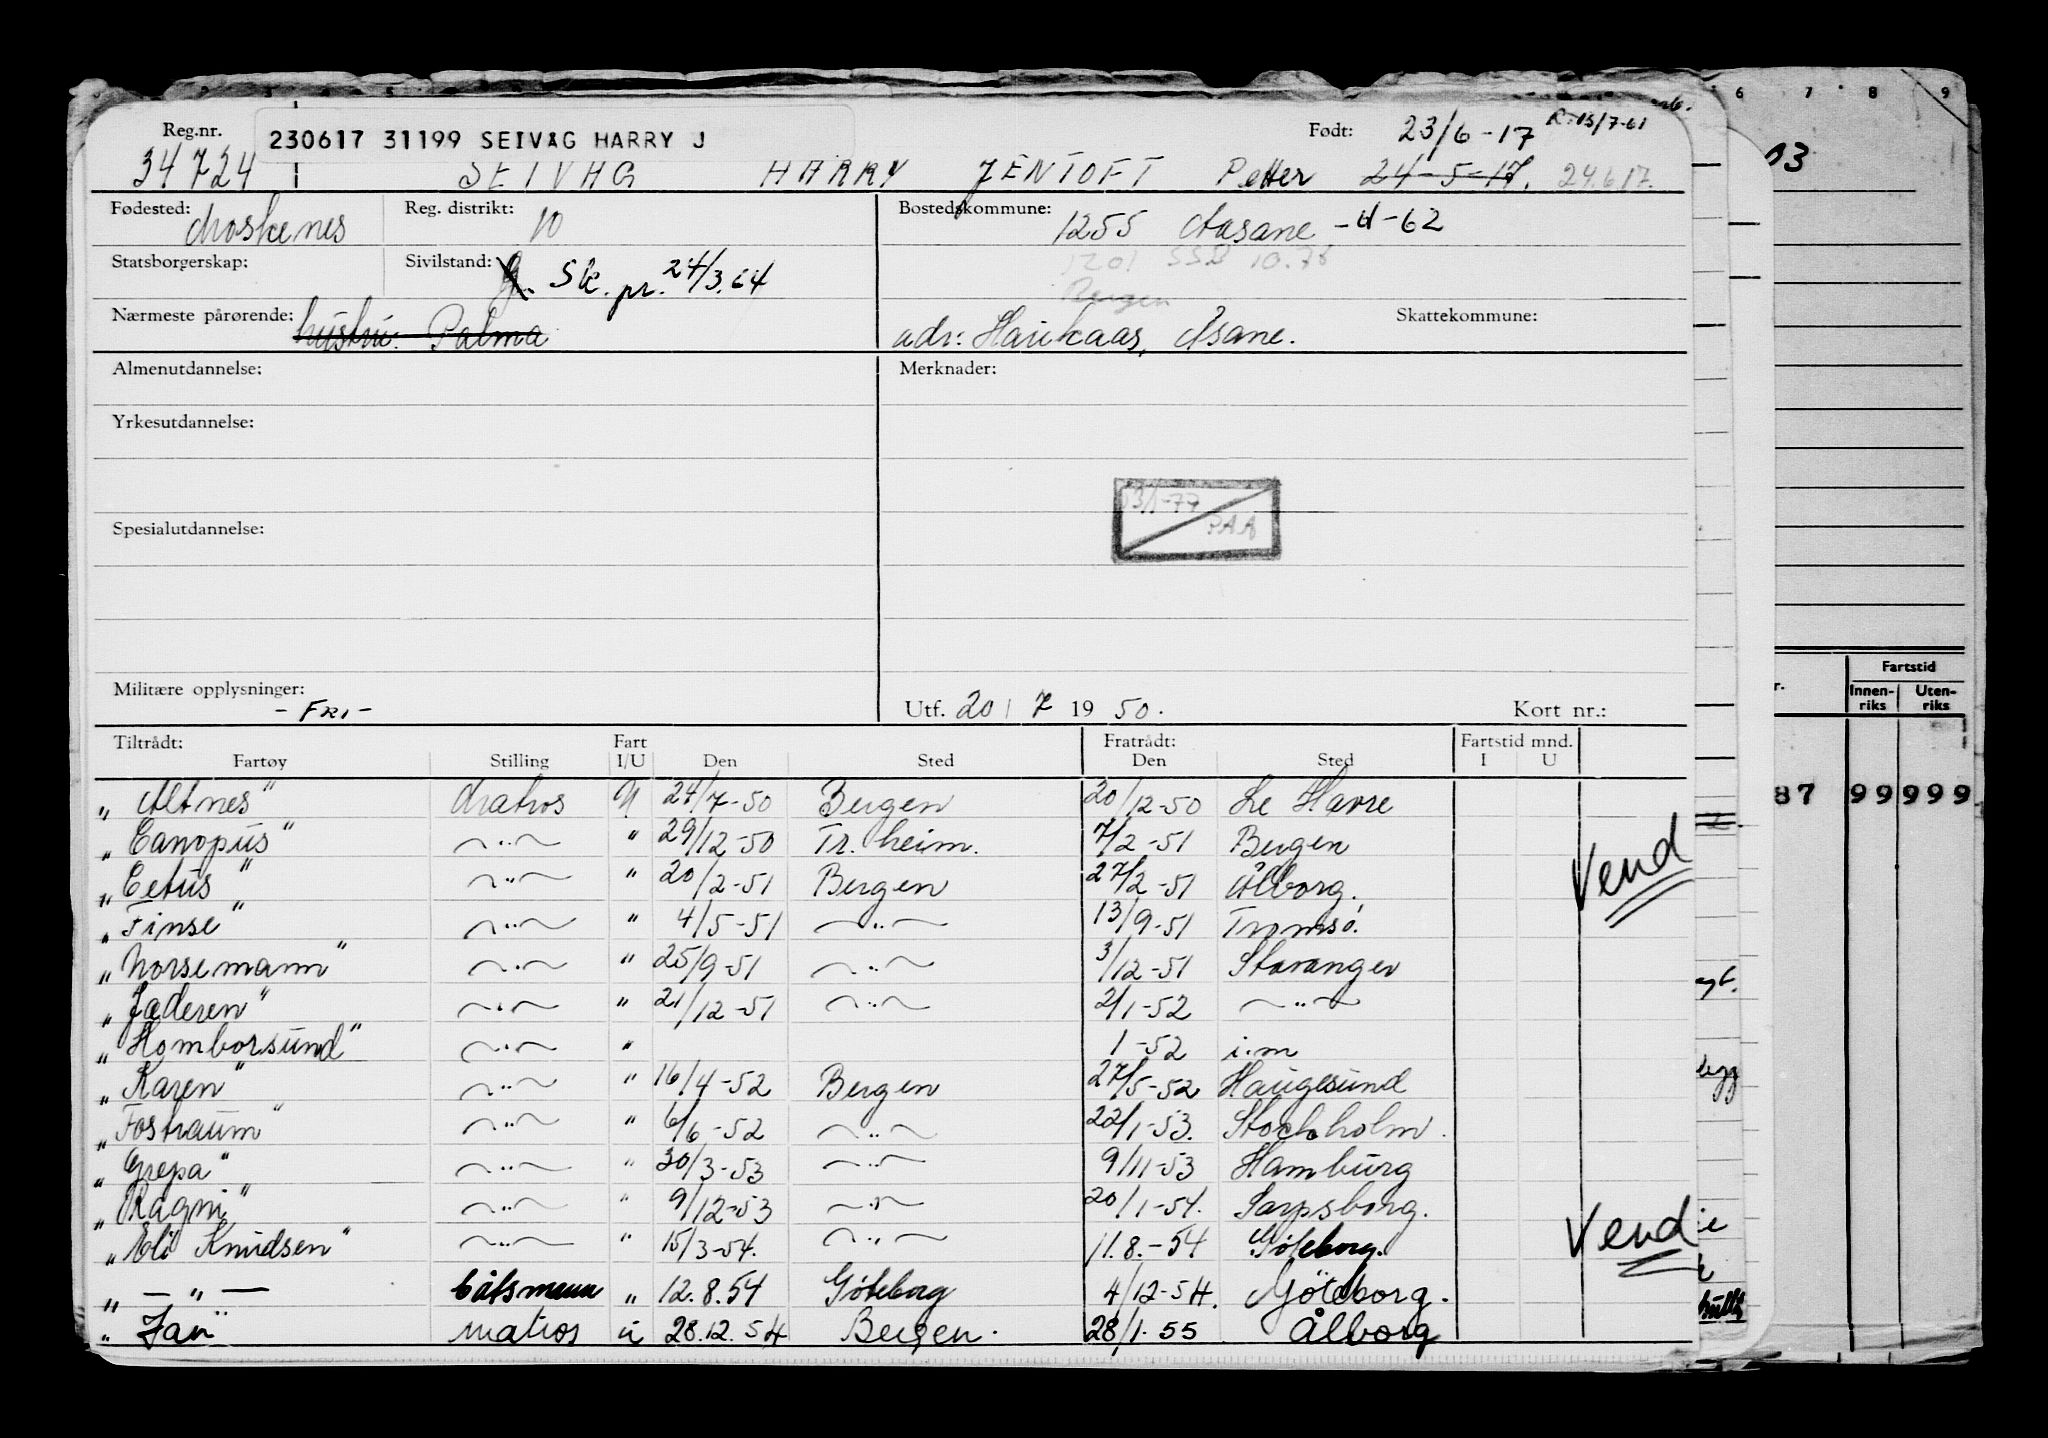 6 7 8 9
Reg.nr. 230617 31199 SEIVAG HARRY J Født: 23/6-17 R. 15/7-61
34724 SEIVAG HARRY JENTOFT Petter 24-5-17. 24.6.17.
Fødested: Moskenes Reg. distrikt: 10 Bostedskommune: 1255 Aasane -4-62
1201 SSB 10.78
Statsborgerskap: Sivilstand: G. Sk. pr. 24/3.64 Bergen
Nærmeste pårørende: hustru: Palma adr: Haukaas, Åsane. Skattekommune:
Almenutdannelse: Merknader:
Yrkesutdannelse:
Spesialutdannelse:
Militære opplysninger: - FRI - Utf. 20 / 7 19 50. Kort nr.:
Tiltrådt: Fart Fratrådt: Fartstid mnd.
Fartøy Stilling I/U Den Sted Den Sted I U
"Altnes" Matros U 24/7-50 Bergen 20/12-50 Le Havre
"Canopus" -"- " 29/12-50 Tr.heim. 7/2-51 Bergen
"Cetus" -"- " 20/2-51 Bergen 27/2-51 Ålborg.
"Finse" -"- " 4/5-51 -"- 13/9-51 Tromsø.
"Norsemann" -"- " 25/9-51 -"- 3/12-51 Stavanger
"Jæderen" -"- " 21/12-51 -"- 2/1-52 -"-
"Homborsund" -"- " 1-52 i.m
"Karen" -"- " 16/4-52 Bergen 27/5-52 Haugesund
"Fostraum" -"- " 6/6-52 -"- 22/1-53. Stockholm.
"Grepa" -"- " 30/3-53 -"- 9/11-53 Hamburg
"Ragni" -"- " 9/12-53 -"- 20/1-54. Sarpsborg.
"Eli Knudsen" -"- " 15/3-54. -"- 11.8.-54 Göteborg.
" - " - båtsmann " 12.8.54 Göteborg 4/12-54. Göteborg.
"Jan" matros u 28.12.54 Bergen. 28/1-55 Ålborg
Vend
Vend
Fartstid
Innen-riks Uten-riks
87 99 999